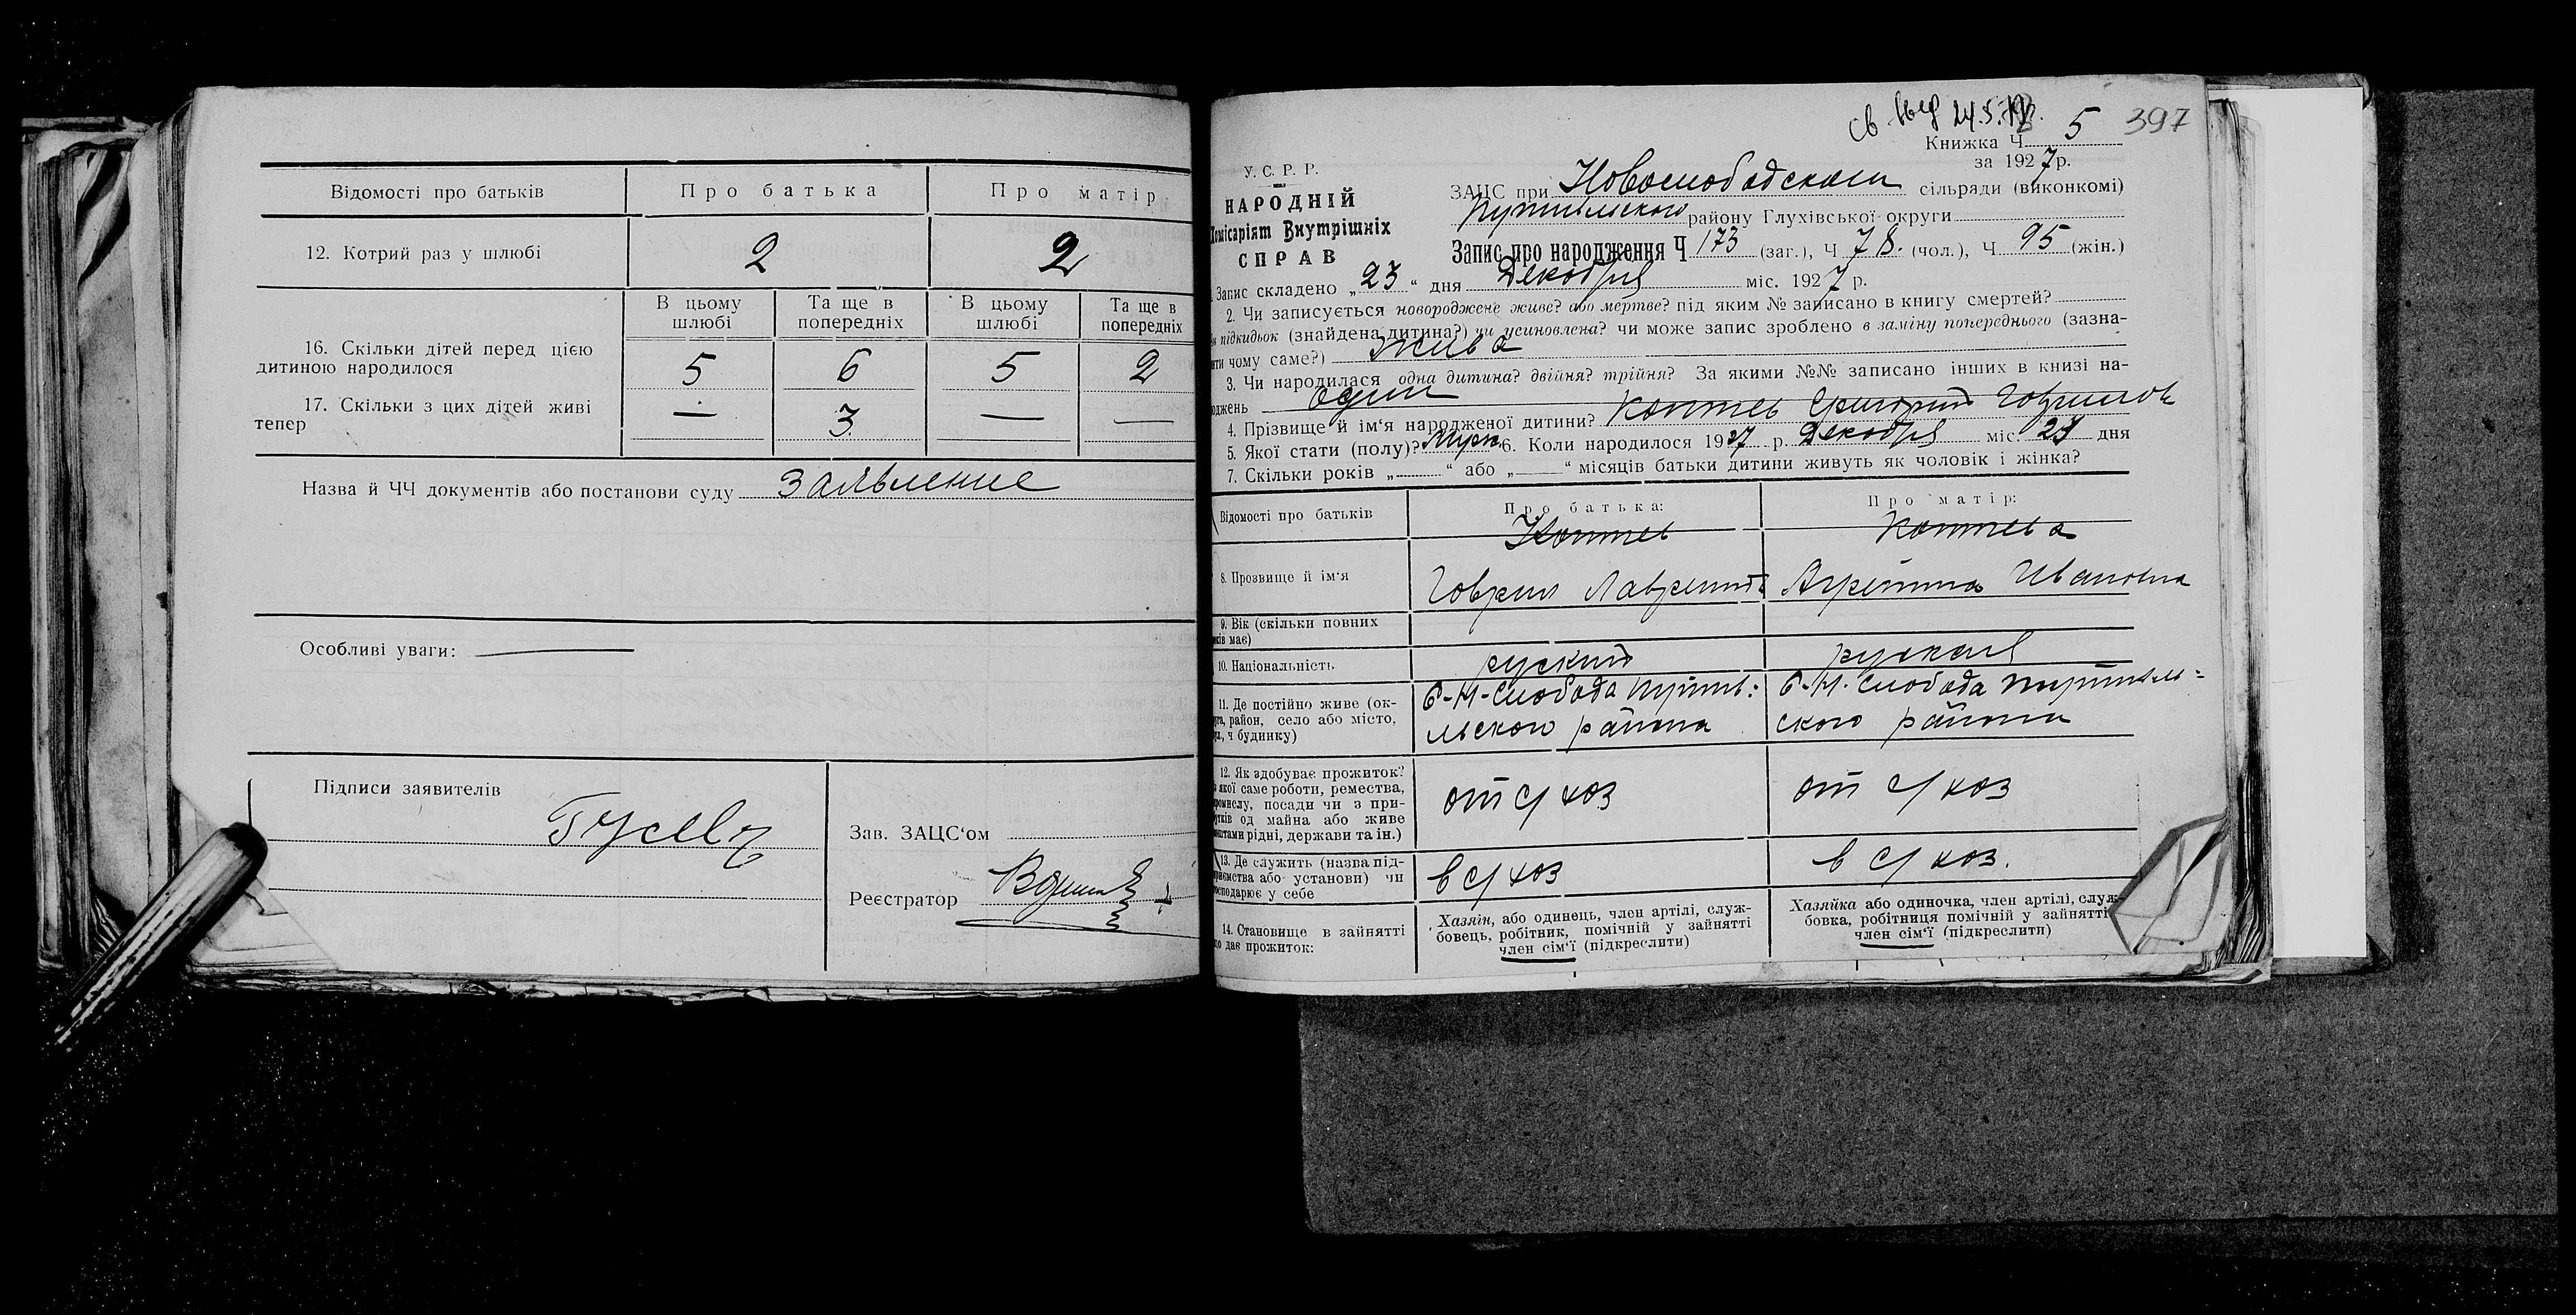 Відомості про батьків
Про батька
Про матір
12. Котрий раз у шлюбі
2
2
В цьому шлюбі
Та ще в попередніх
В цьому шлюбі
Та ще в попередніх
16. Скільки дітей перед цією
дитиною народилося
5
6
5
2
17. Скільки з цих дітей живі
тепер
—
3
—
—
Назва й ЧЧ документів або постанови суду Заявление
Особливі уваги: —
Підписи заявителів
Зав. ЗАЦС‘ом
Реєстратор
24.5.
397
Книжка Ч. 5
за 1927 р.
У. С. Р. Р.
НАРОДНІЙ
Комісаріят Внутрішніх
СПРАВ
ЗАЦС при Новослободском сільради (виконкомі)
Путивльского району Глухівської округи
Запис про народження Ч 173 (заг.), Ч 78. (чол.), Ч 95 (жін.)
Запис складено „23“ дня Декабря міс. 1927 р.
2. Чи записується новороджене живе? або мертве? під яким № записано в книгу смертей?
підкидьок (знайдена дитина?) чи усиновлена? чи може запис зроблено в заміну попереднього (зазна-
чому саме?) жива
3. Чи народилася одна дитина? двійня? трійня? За якими №№ записано інших в книзі на-
один
4. Прізвище й ім‘я народженої дитини? Коптев Григорий Говрилов
5. Якої стати (полу)? Мужк. 6. Коли народилося 1927 р. Декабря міс. 23 дня
7. Скільки років „ “ або „ “ місяців батьки дитини живуть як чоловік і жінка?
Відомості про батьків
Про батька:
Про матір:
8. Прозвище й ім‘я
Коптев
Говрил Лаврентев
Коптева
Агрепина Ивановна
9. Вік (скільки повних
має)
10. Національність
руский
руская
11. Де постійно живе (ок-
район, село або місто,
ч будинку)
С-Н-Слобода Путив:
льского района
С-Н-Слобода Путивль=
ского района
12. Як здобуває прожиток?
якої саме роботи, ремества,
посади чи з при-
од майна або живе
рідні, держави та ін.)
от с/хоз
от с/хоз
13. Де служить (назва під-
або установи) чи
у себе
в с/хоз
в с/хоз.
14. Становище в зайнятті
дає прожиток:
Хазяїн, або одинець, член артілі, служ-
бовець, робітник, помічній у зайнятті
член сім‘ї (підкреслити)
Хазяйка або одиночка, член артілі, служ-
бовка, робітниця помічній у зайнятті
член сім‘ї (підкреслити)